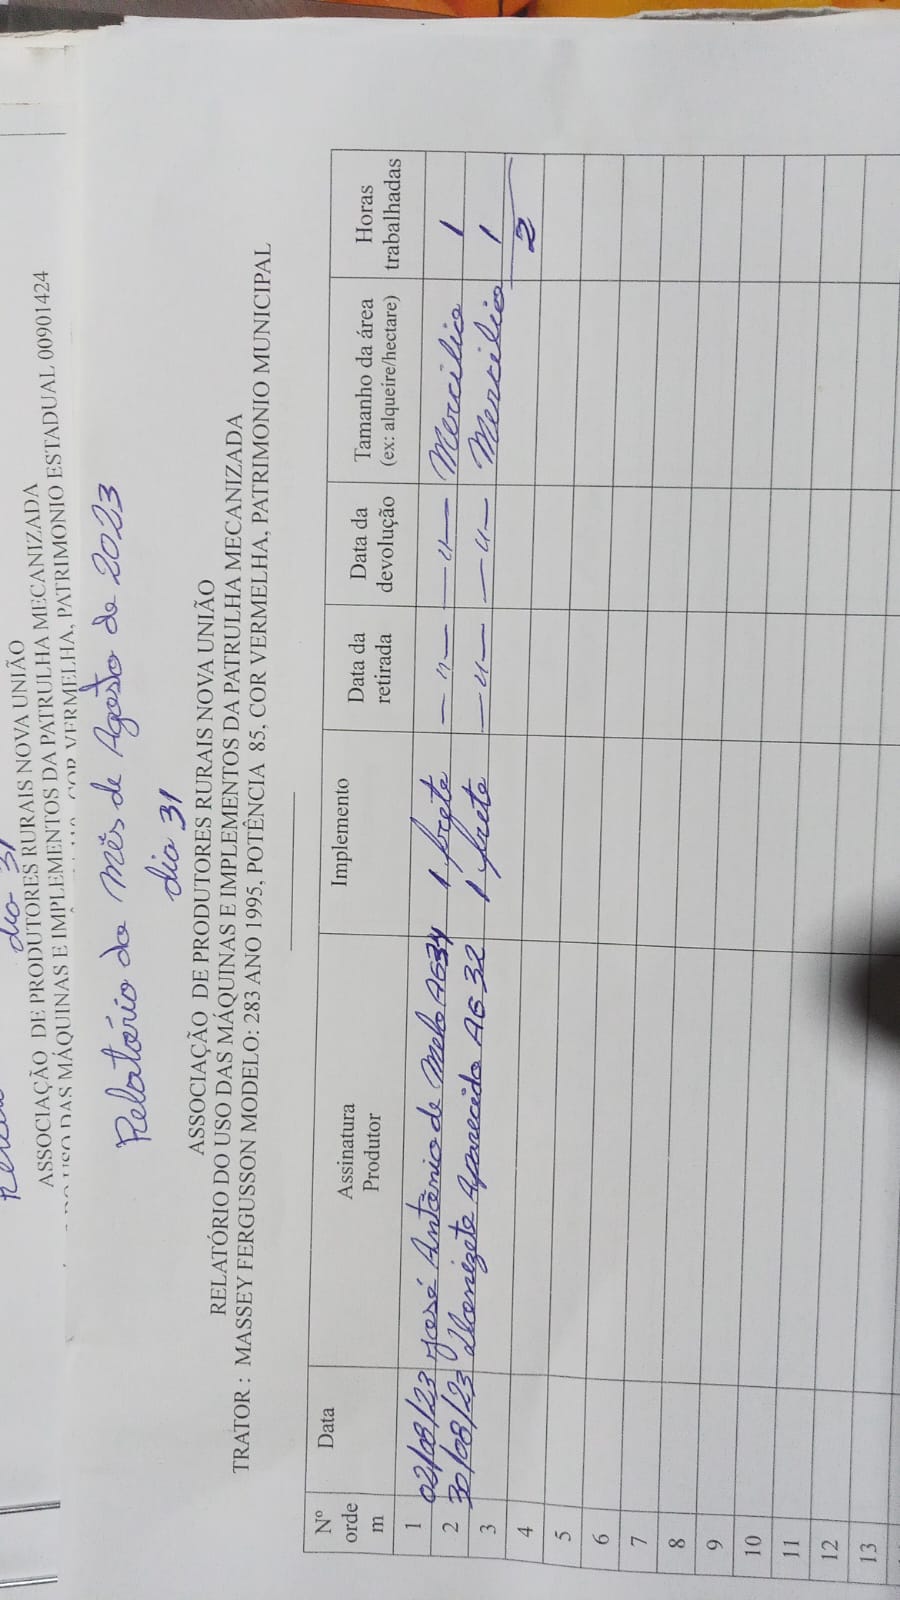 dio 31
ASSOCIAÇÃO DE PRODUTORES RURAIS NOVA UNIÃO
DAS MÁQUINAS E IMPLEMENTOS DA PATRULHA MECANIZADA
COR VERMELHA, PATRIMONIO ESTADUAL 00901424
Relatório do Mês de Agosto de 2023
dia 31
ASSOCIAÇÃO DE PRODUTORES RURAIS NOVA UNIÃO
RELATÓRIO DO USO DAS MÁQUINAS E IMPLEMENTOS DA PATRULHA MECANIZADA
TRATOR : MASSEY FERGUSSON MODELO: 283 ANO 1995, POTÊNCIA 85, COR VERMELHA, PATRIMONIO MUNICIPAL
Nº ordem Data Assinatura Produtor Implemento Data da retirada Data da devolução Tamanho da área (ex: alqueire/hectare) Horas trabalhadas
1 02/08/23 José Antônio de Melo AG34 1 frete —"— —"— 1
2 30/08/23 Aparecida AG 32 1 frete —"— —"— 1
3 2
4
5
6
7
8
9
10
11
12
13